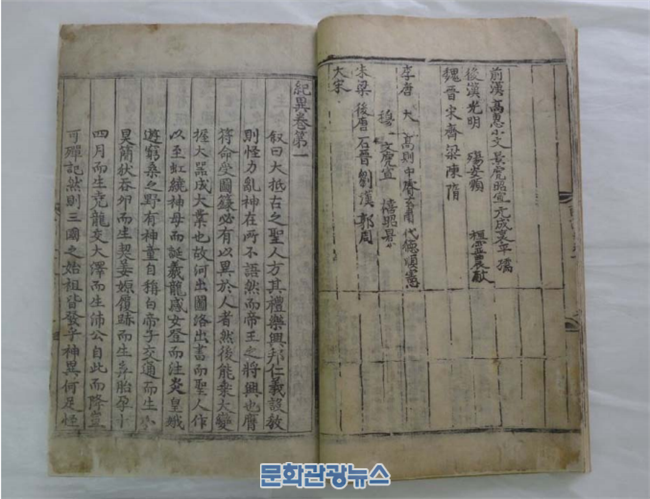 前漢 高惠小文 景虎昭宣 元成哀平孺
後漢光明 殤安順 桓靈農献
魏晉宋齊梁陳隋
李唐 大 高則中睿玄肅代德順憲
穆 文虎宣
朱梁 後唐 石晉 劉漢 郭周
大宋
紀異卷第一
叙曰大抵古之聖人方其禮樂興邦仁義設教
則怪力亂神在所不語然而帝王之將興也膺
符命受圖籙必有以異於人者然後能乗大變
握大器成大業也故何出圖絡出書而聖人作
以至虹繞神母而誕羲龍感女登而注炎皇娥
遊窮桑之野有神童自稱白帝子交通而生小
昊簡狄吞卵而生契姜嫄履跡而生弃胎孕十
四月而生堯龍交大澤而生沛公自此而降豈
可殫記然則三國之始祖皆發乎神異何足怪
문화관광뉴스